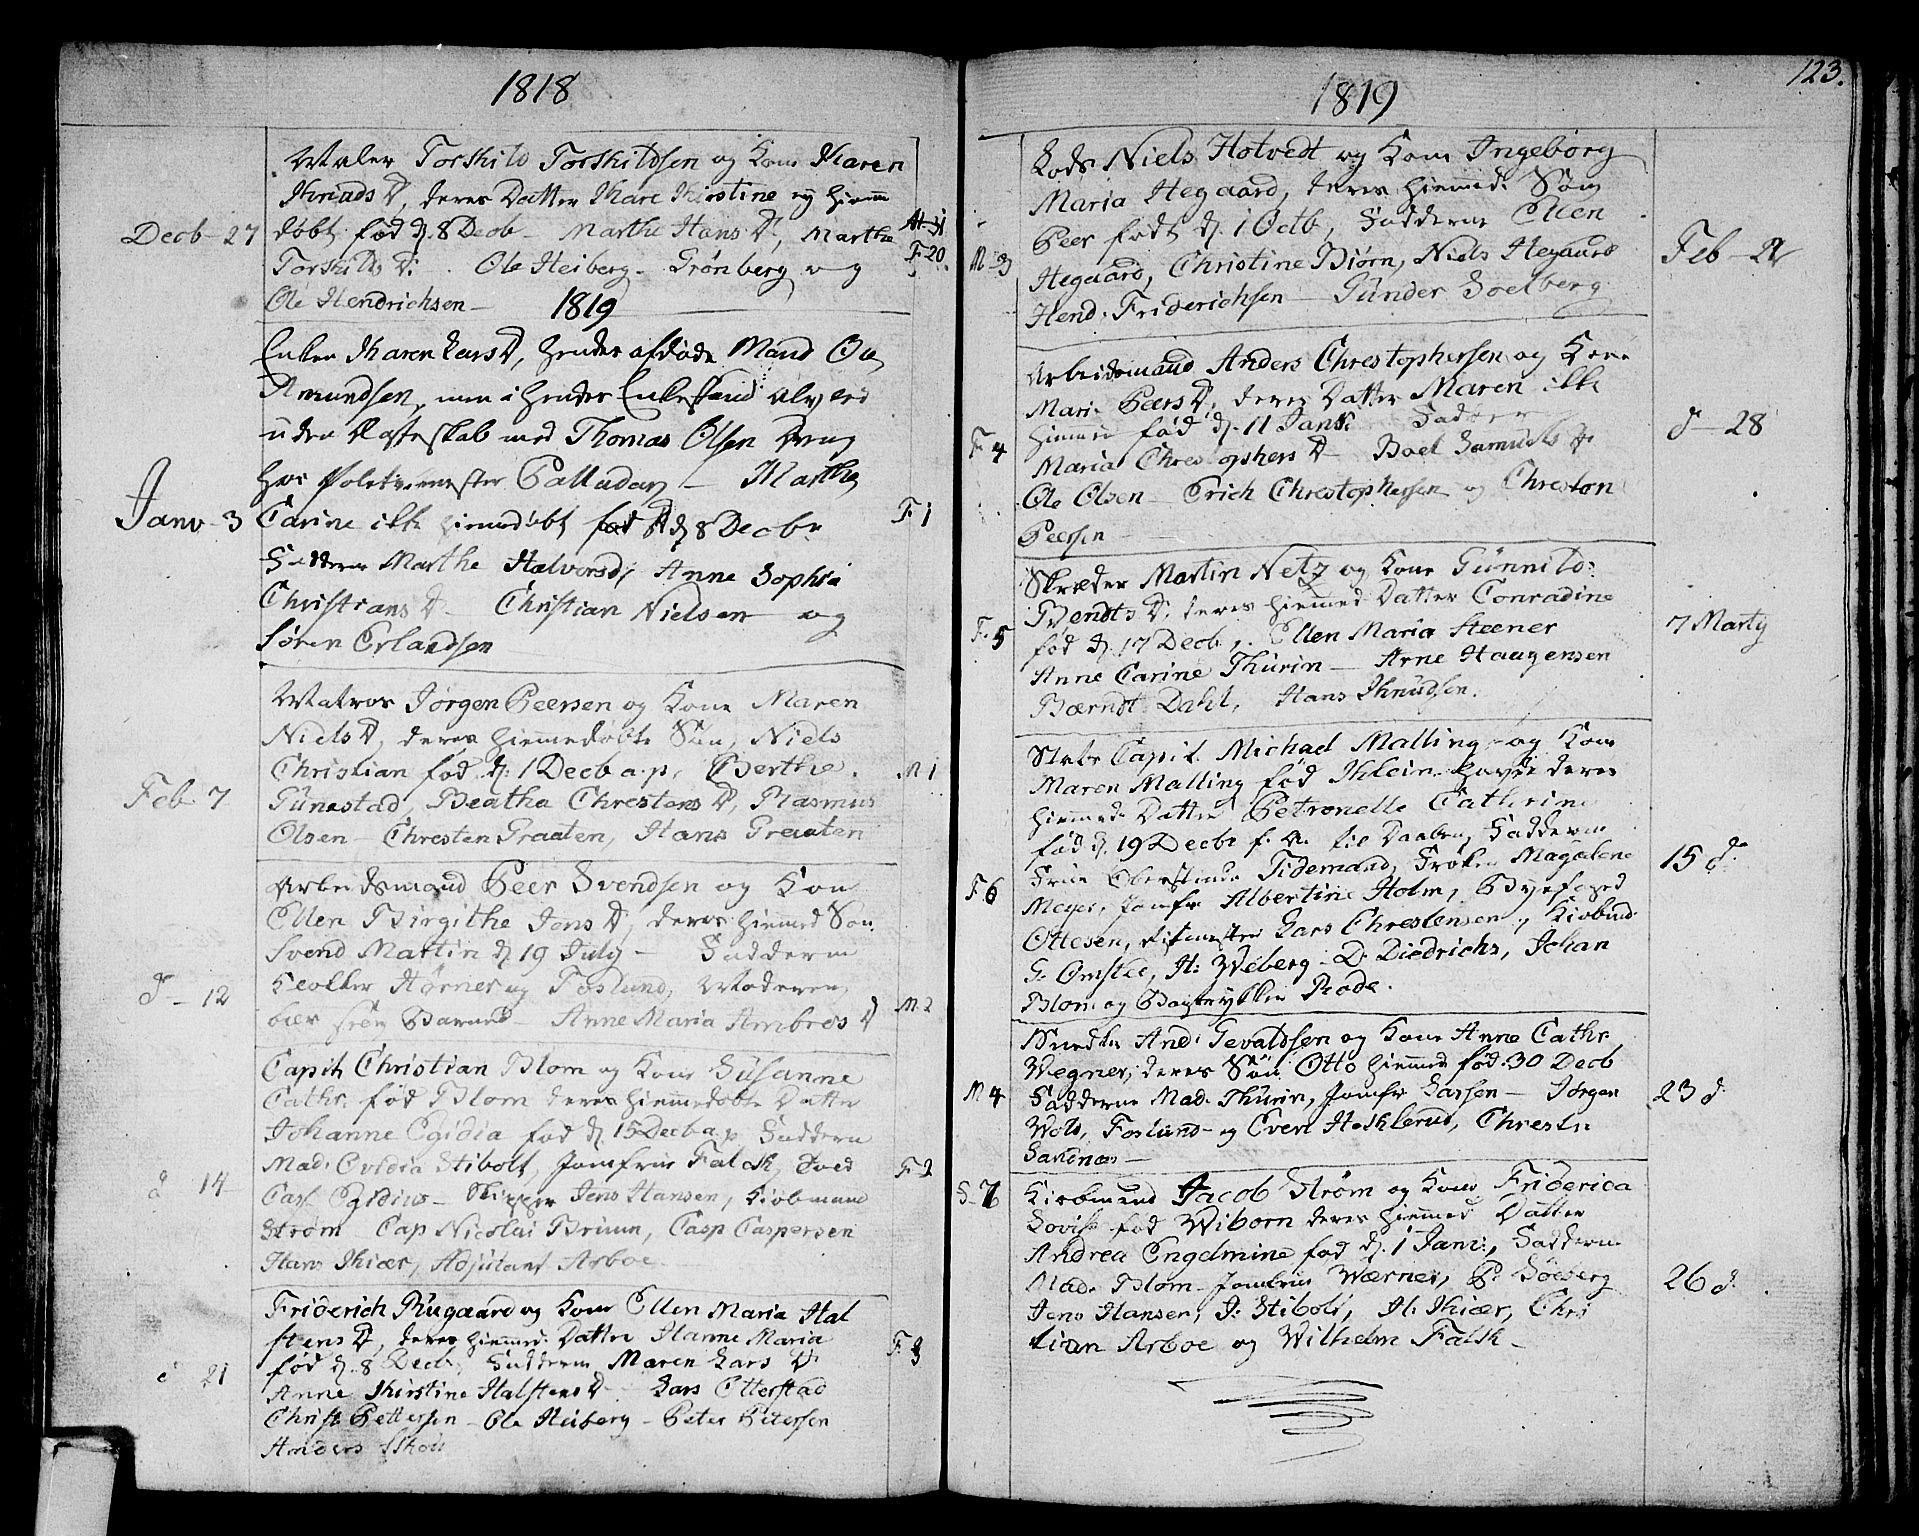 1818
Maler Torskild Torskildsen og Kone Karen
Knuds D, deres Datter Kare Kirstine ey hiemme
Decb - 27 døbt. fød d. 8 Decb - Marthe Hans D, Marthe
F 20
Torskilds D: Ole Heiberg - Grønberg og
Ole Hendrichsen -
1819
Enken Karen Lars D, hendes afdøde Mand Ole
Amundsen, men i hendes Enkestand avlet
uden Ægteskab med Thomas Olsen Dreng
hos Politiemester Palludan - Marthe
Janv - 3 Carine ikke hiemedøbt fød d 8 Decbr F. 1
Fadderne Marthe Halvorsd, Anne Sophia
Christians D - Christian Nielsen og
Søren Erlandsen
Matros Jørgen Peersen og Kone Maren
Niels D, deres hiemmedøbte Søn, Niels
Feb. 7 Christian fød d. 1 Decb a.p. Berthe M 1
Gunestad, Beatha Chrestens D, Rasmus
Olsen - Chresten Graaten, Hans Graaten
Arbeidsmand Peer Svendsen og Kone
Ellen Birgithe Jens D, deres hiemmed Søn
Svend Martin d 19 July - Fadderne
d - 12 Hørner og Foslund, Moderen M 2
bær sin Barnet - Anne Maria Ambros D
Capit Christian Blom og Kone Susanne
Cathr. fød Blom deres hiemmedøbte Datter
Johanne Egidia fød d 15 Decb a.p. Faddern
d 14 Mad. Ovidia Stibolt, Jomfrue Falck, F. 2
Carl Egidius - Skipper Jens Hansen, Kiøbmand
Strøm Cap Nicolai Bruun, Casp Caspersen
Hans Kiær, Adjutant Arboe
Friderich Rugaard og Kone Ellen Maria Hal
stens D, deres hiemmed. Datter Hanne Maria
d 21 fød d. 8 Decb. Fadderne Maren Lars D. F. 3
Anne Kirstine Halstens D - Lars Otterstad
Christ. Pettersen - Ole Heiberg - Peter Petersen
Anders Skou
1819
123.
Lods Niels Hotvedt og Kone Ingeborg
Maria Hegaard, deres hiemmed. Søn
Peer født d. 1 Octb, Fadderne Ellen
M - 3 Hegaard, Christine Biørn, Niels Hegaard Feb - 21
Hend. Friderichsen - Gunder Soelberg
Arbeidsmand Anders Chrestophersen og Kone
Mari. Peers D, deres Datter Maren ikke
hiemmed fød d. 11 Jan. Fadder
F. 4 Maria Chrestophers D - Boel Samuels D. d - 28
Ole Olsen - Erich Chrestophersen og Chresten
Peersen -
Skræder Martin Netz og Kone Gunnild
Bendts D. deres hiemmed Datter Conradine
F. 5 fød d. 17 Decb. Ellen Maria Steener 7 Marty
Anne Carine Thurin - Arne Haagensen
Bærndt Dahl, Hans Knudsen.
Stabs Capit. Michael Malling og Kone
Maren Malling fød Klein havde deres
hiemmed. Datter Petronelle Cathrine
fød d. 19 Decbr f. A. til Daaben, Fadderne 15 d.
F. 6 Frue Oberstinde Tidemand, Frøken Magdalene
Meyer, Jomfr Albertine Holm, Byefoged
Ottesen, Ritmester Lars Chrestensen, Kiøbmd.
G. Omsted, H. Weberg - D. Diedrichs, Johan
Blom og Bogtrykker Rode.
Snedker And. Gevaldsen og Kone Anne Cathr.
Wegner, deres Søn Otto hiemmed fød 30 Decb
M. 4 Fadderne Mad. Thurin, Jomfr Larsen - Jørgen 23 d.
Wold, Foslund - og Even Hesklerud, Chresten
Sandnæs -
7 Kiøbmand Jacob Strøm og Kone Friderica
Lovise fød Wiborn deres hiemmed Datter
Andrea Engelmine fød d. 1 Jan., Fadderne
Mad. Blom Jomfrue Wærner, P. Søeberg 26 d.
Jens Hansen, J. Stibolt, H. Kiær, Chri
stian Arboe og Wilhelm Falck -